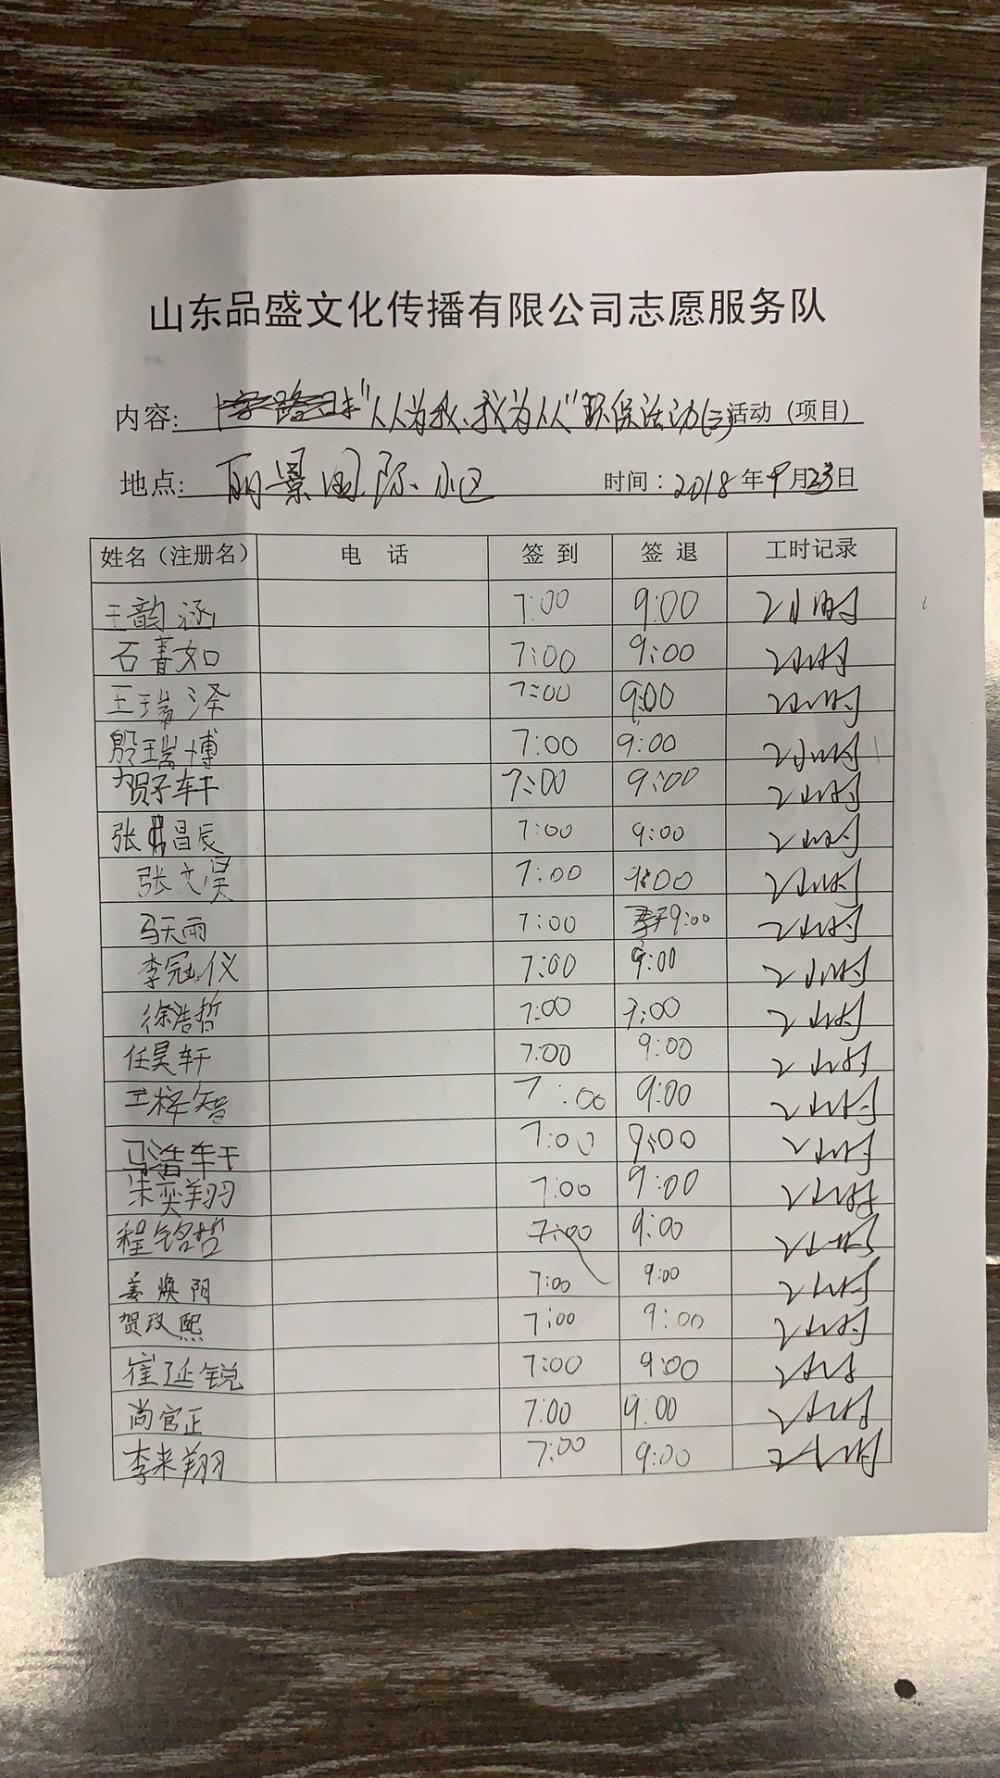 山东品盛文化传播有限公司志愿服务队
内容: "人人为我、我为人人"环保活动(三)活动（项目）
地点: 丽景国际小区 时间：2018年9月23日
姓名（注册名） 电 话 签 到 签 退 工时记录
王韵涵 7:00 9:00 2小时
石菁如 7:00 9:00 2小时
王瑞泽 7:00 9:00 2小时
殷瑞博 7:00 9:00 2小时
贺子轩 7:00 9:00 2小时
张昌辰 7:00 9:00 2小时
张文昊 7:00 9:00 2小时
马天雨 7:00 9:00 2小时
李冠仪 7:00 9:00 2小时
徐浩哲 7:00 9:00 2小时
任昊轩 7:00 9:00 2小时
王梓智 7:00 9:00 2小时
马浩轩 7:00 9:00 2小时
宋奕翔 7:00 9:00 2小时
程铭哲 7:00 9:00 2小时
姜焕阳 7:00 9:00 2小时
贺政熙 7:00 9:00 2小时
崔延锐 7:00 9:00 2小时
尚官正 7:00 9:00 2小时
李来翔 7:00 9:00 2小时